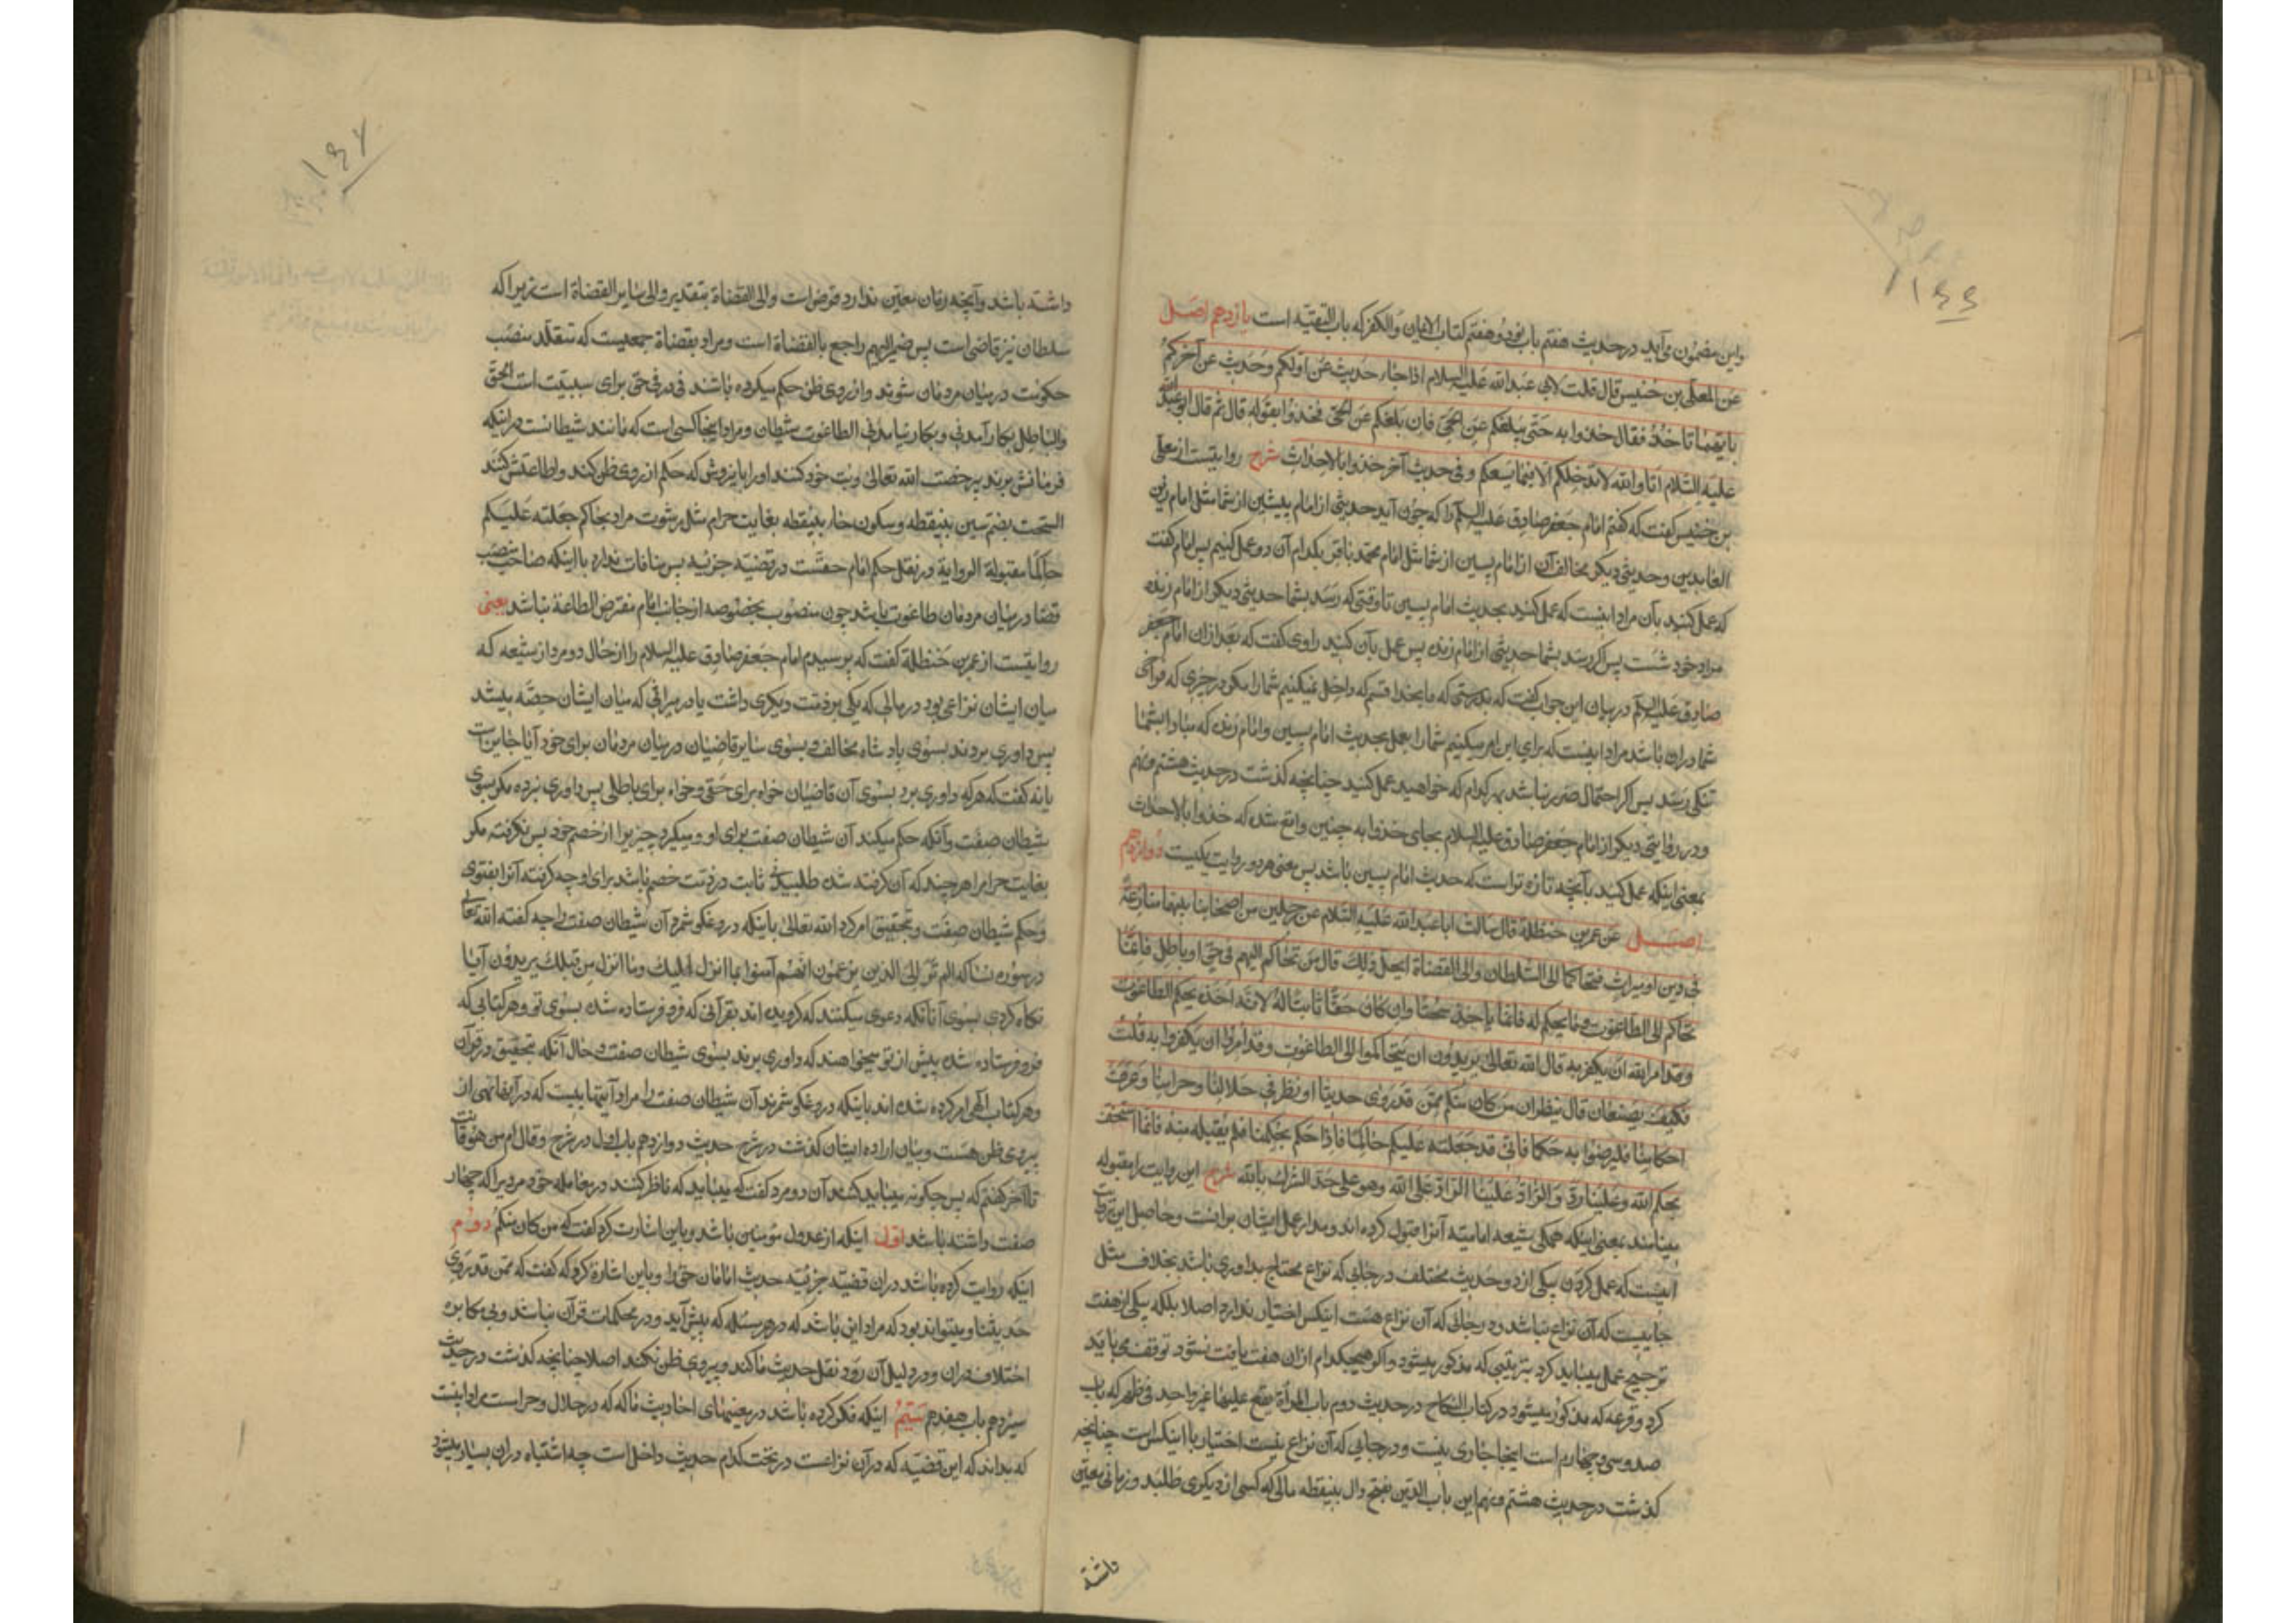 واین مضمون می‌آید در حدیث هفتم باب نود و هفتم کتاب الایمان والکفر که باب التقیّه است یازدهم اصل
عن المعلّی بن خنیس قال قلت لابی عبد الله علیه السلام اذا جاء حدیث عن اولکم وحدیث عن آخرکم
بایهما ناخذ فقال خذوا به حتّی یبلغکم عن الحیّ فان بلغکم عن الحیّ فخذوا بقوله قال ثم قال ابو عبد الله
علیه السّلام انّا والله لا ندخلکم الا فیما یسعکم وفی حدیث آخر خذوا بالاحداث شرح روایتست از معلّی
بن خنیس گفت که گفتم امام جعفر صادق علیه السلم را که چون آید حدیثی از امام پیشین از شما مثل امام زین
العابدین وحدیثی دیگر مخالف آن از امام پسین از شما مثل امام محمد باقر بکدام آن دو عمل کنیم پس امام گفت
که عمل کنید بآن مراد اینست که عمل کنید بحدیث امام پسین تا وقتی که رسد بشما حدیثی دیگر از امام زنده
مراد خود شست پس اگر رسد بشما حدیثی از امام زنده پس عمل بآن کنید راوی گفت که بعد ازان امام جعفر
صادق علیه السلم در بیان این جواب گفت که بدرستی که ما بخدا قسم که داخل نمیکنیم شما را مگر در چیزی که فراخی
شما دران باشد مراد اینست که برای این امر میکنیم شما را بعمل بحدیث امام پسین وامام زنده که مبادا بشما
تنگی رسد پس اگر احتمال ضرر نباشد بهر کدام که خواهید عمل کنید چنانچه گذشت در حدیث هشتم ونهم
ودر روایتی دیگر از امام جعفر صادق علیه السلام بجای خذوا به چنین واقع شده که خذوا بالاحداث
بمعنی اینکه عمل کنید بآنچه تازه تر است که حدیث امام پسین باشد پس معنی هر دو روایت یکیست دوازدهم
اصل عن عمر بن حنظلة قال سالت ابا عبد الله علیه السّلام عن رجلین من اصحابنا بینهما منازعة
فی دین او میراث فتحاکما الی السّلطان والی القضاة ایحلّ ذلک قال من تحاکم الیهم فی حق او باطل فانّما
تحاکم الی الطاغوت وما یحکم له فانما یاخذ سحتا وان کان حقّا ثابتا له لانّه اخذه بحکم الطاغوت
وقد امر الله ان یکفر به قال الله تعالی یریدون ان یتحاکموا الی الطاغوت وقد امروا ان یکفروا به قلت
فکیف یصنعان قال ینظران من کان منکم ممّن قد روی حدیثنا ونظر فی حلالنا وحرامنا وعرف
احکامنا فلیرضوا به حکما فانّی قد جعلته علیکم حاکما فاذا حکم بحکمنا فلم یقبله منه فانما استخفّ
بحکم الله وعلینا ردّ والرّادّ علینا الرّادّ علی الله وهو علی حدّ الشرک بالله شرح این روایت را مقبوله
مینامند بمعنی اینکه همگی شیعه امامیّه آنرا قبول کرده اند ومدار عمل ایشان برانست وحاصل این
اینست که عمل کردن بیکی از دو حدیث مختلف در جایی که نزاع محتاج بداوری باشد بخلاف مثل
جاییست که آن نزاع نباشد ودر جائی که آن نزاع هست اینکس اختیار ندارد اصلا بلکه بیکی از هفت
ترجیح عمل میباید کرد بترتیبی که مذکور میشود واگر هیچکدام ازان هفت یافت نشود توقف می باید
کرد وقرعه که مذکور میشود در کتاب النکاح در حدیث دوم باب المرأة یقع علیها غیر واحد فی طهر که باب
صد وسی وچهارم است اینجا جاری نیست ودر جایی که آن نزاع نیست اختیار با اینکس است چنانچه
گذشت در حدیث هشتم ونهم این باب الدین بفتح دال بینقطه مالی که کسی از دیگری طلبد وزمانی معیّن
داشته
داشته باشد وآنچه زمان معیّن ندارد قرض است والی القضاة بتقدیر والی سایر القضاة است زیرا که
سلطان نیز قاضی است پس ضمیر الیهم راجع بالقضاة است ومراد بقضاة جمعیست که متقلّد منصب
حکومت در میان مردمان شوند واز روی ظن حکم میکرده باشند فی در فی حق برای سببیّت است الحق
والباطل بکار آمدنی وبکار نیامدنی الطاغوت شیطان ومراد اینجا کسی است که مانند شیطانست در اینکه
فرمانش برند بی رخصت الله تعالی وبت خود کنند او را باین روش که حکم از روی ظن کند واطاعتش کنند
السّحت بضمّ سین بینقطه وسکون حاء بینقطه بغایت حرام مثل رشوت مراد بحاکم جعلته علیکم
حاکما مقبولة الروایة در نقل حکم امام حقّست در قضیّه جزئیه پس منافات ندارد با اینکه صاحب منصب
قضا در میان مردمان طاغوت باشد چون منصوب بخصوصه از جانب امام مفترض الطاعة نباشد یعنی
روایتست از عمر بن حنظله گفت که پرسیدم امام جعفر صادق علیه السلام را از حال دو مرد از شیعه که
میان ایشان نزاعی بود در مالی که یکی بر ذمّت دیگری داشت یا در میراثی که میان ایشان حصّه میشد
پس داوری بردند بسوی پادشاه مخالف وبسوی سایر قاضیان در میان مردمان برای خود آیا جایز است
یا نه گفت که هر که داوری برد بسوی آن قاضیان خواه برای حقی وخواه برای باطلی پس داوری نبرده مگر بسوی
شیطان صفت وآنکه حکم میکند آن شیطان صفت برای او ومیگیرد چیزیرا از خصم خود پس نگرفته مگر
بغایت حرام را هر چند که آن گرفته شده طلبیده ثابت در ذمّت خصم باشد برای او چه گرفته آنرا بفتوی
وحکم شیطان صفت وتحقیق امر کرد الله تعالی باینکه دروغگو شمرد آن شیطان صفت را چه گفته الله تعالی
در سوره نسا که الم تر الی الذین یزعمون انهم آمنوا بما انزل الیک وما انزل من قبلک یریدون آیا
نگاه کردی بسوی آنانکه دعوی میکنند که گرویده اند بقرآنی که فرو فرستاده شده بسوی تو وهر کتابی که
فرو فرستاده شده پیش از تو میخواهند که داوری برند بسوی شیطان صفت وحال آنکه بتحقیق در قرآن
وهر کتاب الهی امر کرده شده اند باینکه دروغگو شمرند آن شیطان صفت را مراد آیتهاییست که در آنها نهی از
پیروی ظن هست وبیان اراده ایشان گذشت در شرح حدیث دوازدهم باب اول در شرح وقال امن هو قانت
تا آخر گفتم که پس چگونه میباید کنند آن دو مرد گفت که میباید که ناظر کنند در معامله خود مردیرا که چهار
صفت داشته باشد اوّل اینکه از عدول مؤمنین باشد وباین اشارت کرد گفت که من کان منکم دوم
اینکه روایت کرده باشد دران قضیّه جزئیّه حدیث امامان حق را وباین اشاره کرد که گفت که ممّن قد روی
حدیثنا ومیتواند بود که مراد این باشد که در هر مسئله که پیش آید ودر محکمات قرآن نباشد وبی مکابره
اختلاف دران ودر دلیل آن رود نقل حدیث ما کند وپیروی ظن نکند اصلا چنانچه گذشت در حدیث
سیزدهم باب هفدهم سیّم اینکه فکر کرده باشد در معنیهای احادیث ما که که در حلال وحرامست مراد اینست
که بداند که این قضیّه که درآن نزاعست در تحت کدام حدیث داخل است چه اشتباه دران بسیار میشود